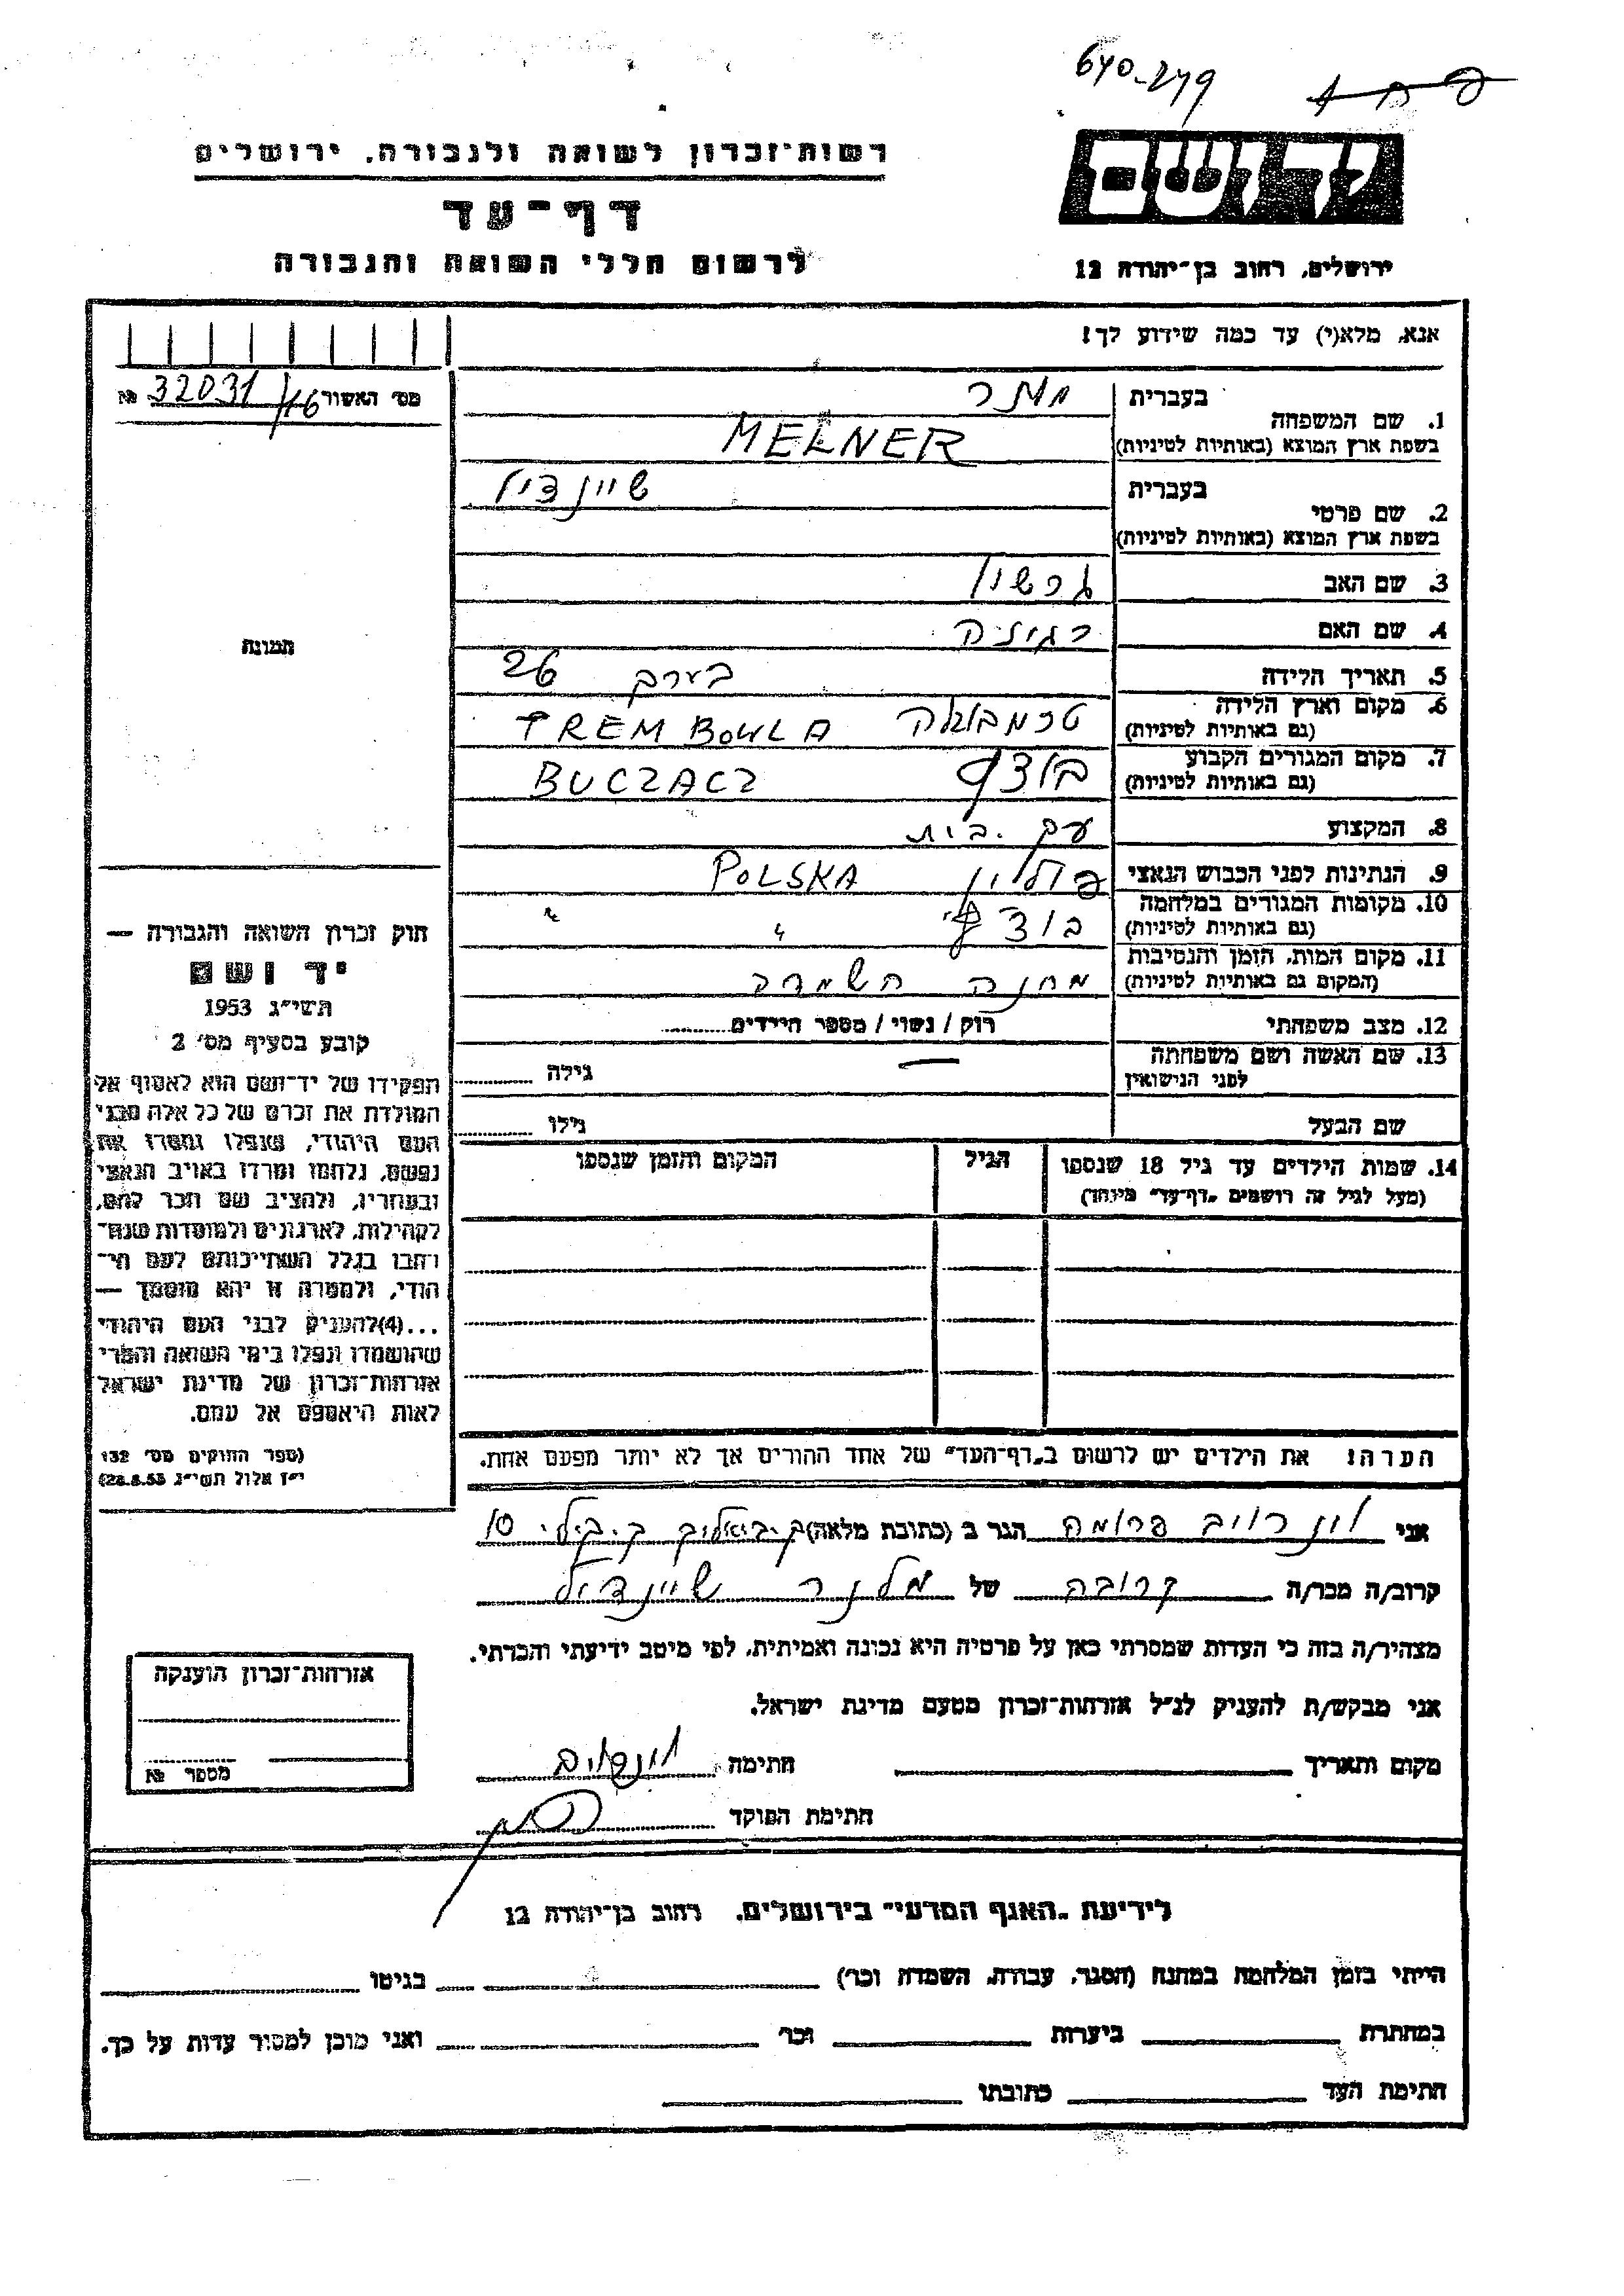 640-249
רשות־זכרון לשואה ולגבורה, ירושלים
יד ושם
דף־עד
לרשום חללי השואה והגבורה
ירושלים, רחוב בן־יהודה 12
אנא, מלא(י) עד כמה שידוע לך!
מס׳ האשור 32031/116 №
1. שם המשפחה
בעברית מלנר
בשפת ארץ המוצא (באותיות לטיניות) MELNER
2. שם פרטי
בעברית שיינדיל
בשפת ארץ המוצא (באותיות לטיניות)
3. שם האב גרשון
4. שם האם רגינה
5. תאריך הלידה בערך 26
6. מקום וארץ הלידה (גם באותיות לטיניות) טרמבולה TREMBOWLA
7. מקום המגורים הקבוע (גם באותיות לטיניות) בוצץ BUCZACZ
8. המקצוע עק. בית
9. הנתינות לפני הכבוש הנאצי פולין POLSKA
10. מקומות המגורים במלחמה (גם באותיות לטיניות) בוצץ " "
11. מקום המות, הזמן והנסיבות (המקום גם באותיות לטיניות) מחנה השמדה
12. מצב משפחתי רוק / נשוי / מספר הילדים
13. שם האשה ושם משפחתה לפני הנישואין — גילה
שם הבעל גילו
14. שמות הילדים עד גיל 18 שנספו הגיל המקום והזמן שנספו
(מעל לגיל זה רושמים „דף־עד״ מיוחד)
תמונה
חוק זכרון השואה והגבורה —
יד ושם
תשי״ג 1953
קובע בסעיף מס׳ 2
תפקידו של יד־ושם הוא לאסוף אל
המולדת את זכרם של כל אלה מבני
העם היהודי, שנפלו ומסרו את
נפשם, נלחמו ומרדו באויב הנאצי
ובעוזריו, ולהציב שם וזכר להם,
לקהילות, לארגונים ולמוסדות שנח־
רבו בגלל השתייכותם לעם הי־
הודי, ולמטרה זו יהא מוסמך —
...(4) להעניק לבני העם היהודי
שהושמדו ונפלו בימי השואה והמרי
אזרחות־זכרון של מדינת ישראל
לאות היאספם אל עמם.
(ספר החוקים מס׳ 132
י״ז אלול תשי״ג 28.8.53)
הערה: את הילדים יש לרשום ב„דף־העד״ של אחד ההורים אך לא יותר מפעם אחת.
אני וינרויב פרומה הגר ב (כתובת מלאה) ק. ביאליק 10
קרוב/ה מכר/ה קרובה של מלנר שיינדיל
מצהיר/ה בזה כי העדות שמסרתי כאן על פרטיה היא נכונה ואמיתית, לפי מיטב ידיעתי והכרתי.
אני מבקש/ת להעניק לנ״ל אזרחות־זכרון מטעם מדינת ישראל.
מקום ותאריך חתימה
חתימת הפוקד
אזרחות־זכרון הוענקה
מספר №
לידיעת „האגף המדעי״ בירושלים, רחוב בן־יהודה 12
הייתי בזמן המלחמה במחנה (הסגר, עבודה, השמדה וכר׳) בגיטו
במחתרת ביערות וכר׳ ואני מוכן למסור עדות על כך.
חתימת העד כתובתו